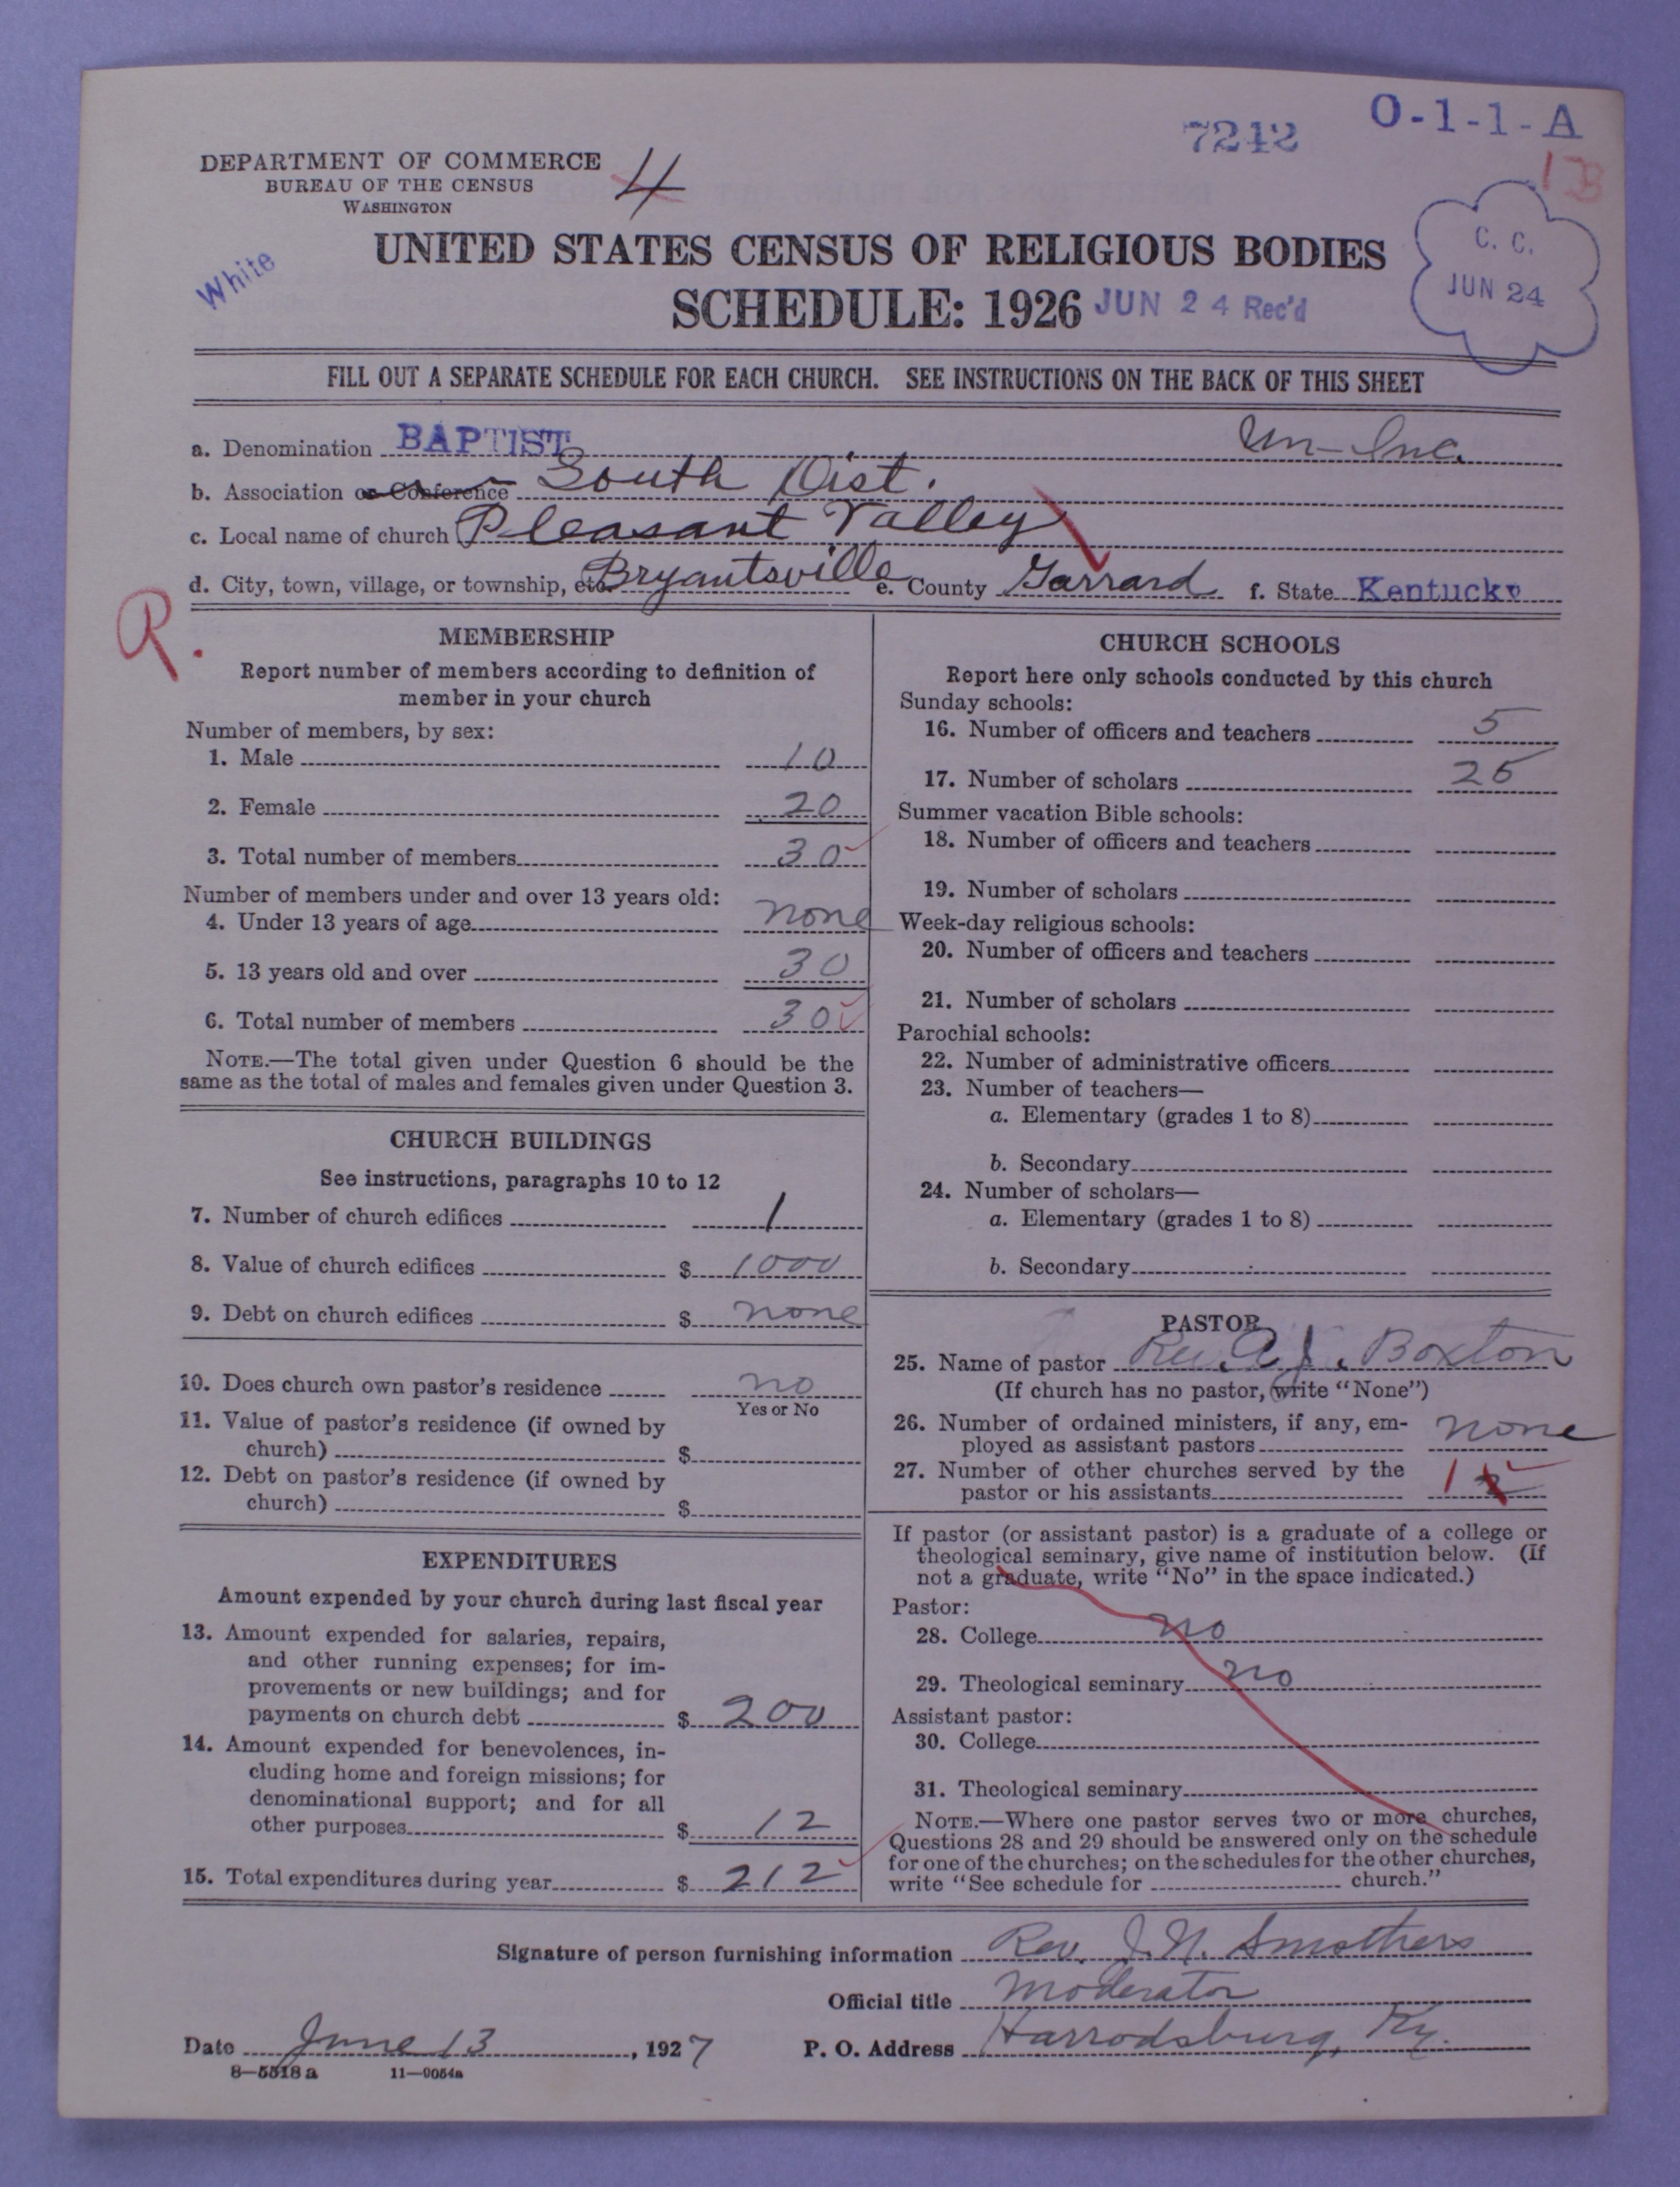 7242
O-1-1-A
1B
DEPARTMENT OF COMMERCE
BUREAU OF THE CENSUS
WASHINGTON
4
White
UNITED STATES CENSUS OF RELIGIOUS BODIES
SCHEDULE: 1926 JUN 24 Rec'd
C. C.
JUN 24
FILL OUT A SEPARATE SCHEDULE FOR EACH CHURCH. SEE INSTRUCTIONS ON THE BACK OF THIS SHEET
a. Denomination BAPTIST Un-Inc.
b. Association or Conference South Dist.
c. Local name of church Pleasant Valley
d. City, town, village, or township, etc. Bryantsville e. County Garrard f. State Kentucky
R.
MEMBERSHIP
Report number of members according to definition of
member in your church
Number of members, by sex:
1. Male 10
2. Female 20
3. Total number of members 30
Number of members under and over 13 years old:
4. Under 13 years of age none
5. 13 years old and over 30
6. Total number of members 30
NOTE.—The total given under Question 6 should be the
same as the total of males and females given under Question 3.
CHURCH BUILDINGS
See instructions, paragraphs 10 to 12
7. Number of church edifices 1
8. Value of church edifices $ 1000
9. Debt on church edifices $ none
10. Does church own pastor's residence no
Yes or No
11. Value of pastor's residence (if owned by
church) $
12. Debt on pastor's residence (if owned by
church) $
EXPENDITURES
Amount expended by your church during last fiscal year
13. Amount expended for salaries, repairs,
and other running expenses; for im-
provements or new buildings; and for
payments on church debt $ 200
14. Amount expended for benevolences, in-
cluding home and foreign missions; for
denominational support; and for all
other purposes $ 12
15. Total expenditures during year $ 212
CHURCH SCHOOLS
Report here only schools conducted by this church
Sunday schools:
16. Number of officers and teachers 5
17. Number of scholars 25
Summer vacation Bible schools:
18. Number of officers and teachers
19. Number of scholars
Week-day religious schools:
20. Number of officers and teachers
21. Number of scholars
Parochial schools:
22. Number of administrative officers
23. Number of teachers—
a. Elementary (grades 1 to 8)
b. Secondary
24. Number of scholars—
a. Elementary (grades 1 to 8)
b. Secondary
PASTOR
25. Name of pastor Rev. A. J. Boxton
(If church has no pastor, write "None")
26. Number of ordained ministers, if any, em-
ployed as assistant pastors none
27. Number of other churches served by the
pastor or his assistants 1
If pastor (or assistant pastor) is a graduate of a college or
theological seminary, give name of institution below. (If
not a graduate, write "No" in the space indicated.)
Pastor:
28. College no
29. Theological seminary no
Assistant pastor:
30. College
31. Theological seminary
NOTE.—Where one pastor serves two or more churches,
Questions 28 and 29 should be answered only on the schedule
for one of the churches; on the schedules for the other churches,
write "See schedule for church."
Signature of person furnishing information Rev. J. N. Smothers
Official title Moderator
Date June 13, 1927 P. O. Address Harrodsburg, Ky.
8—5518 a 11—9054a